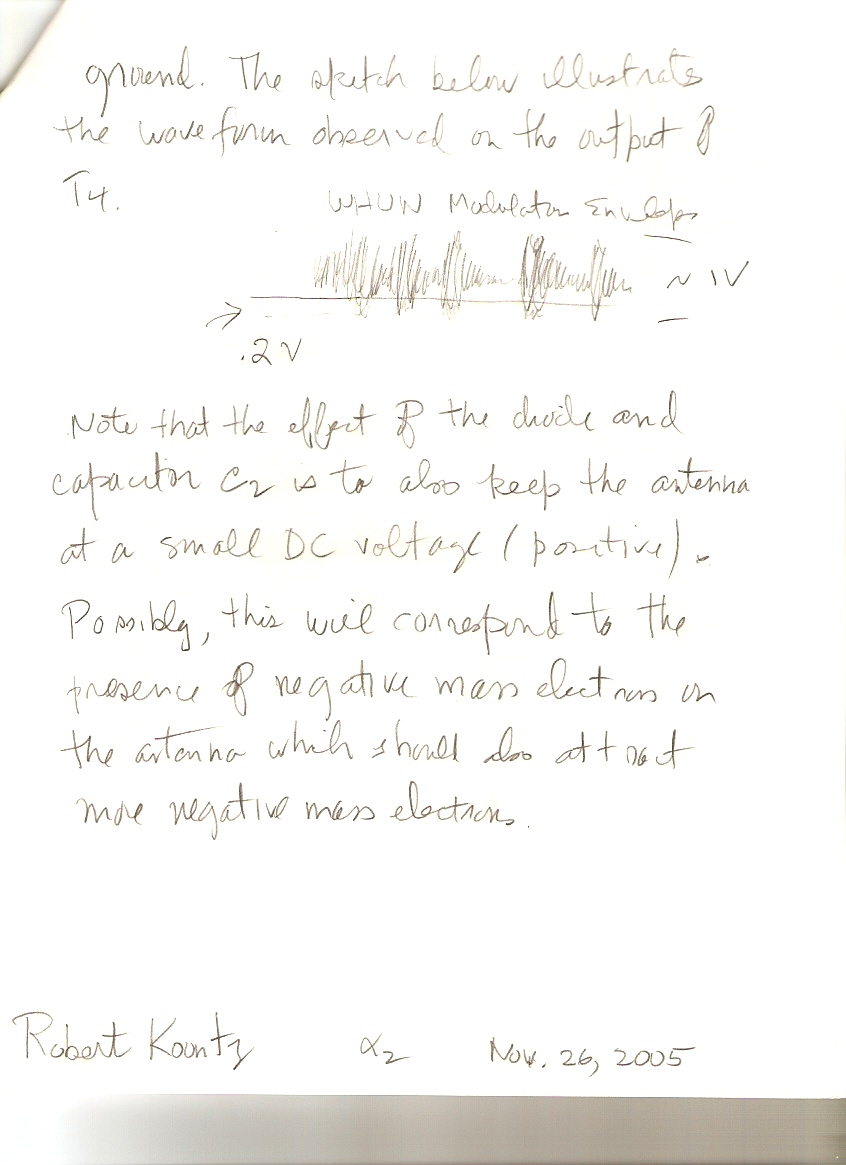 ground. The sketch below illustrates
the waveform observed on the output of
T4.
WHUN Modulator Envelope
~ 1V
.2V
Note that the effect of the diode and
capacitor C2 is to also keep the antenna
at a small DC voltage (positive).
Possibly, this will correspond to the
presence of negative mass electrons on
the antenna which should also attract
more negative mass electrons.
Robert Koontz α2 Nov. 26, 2005